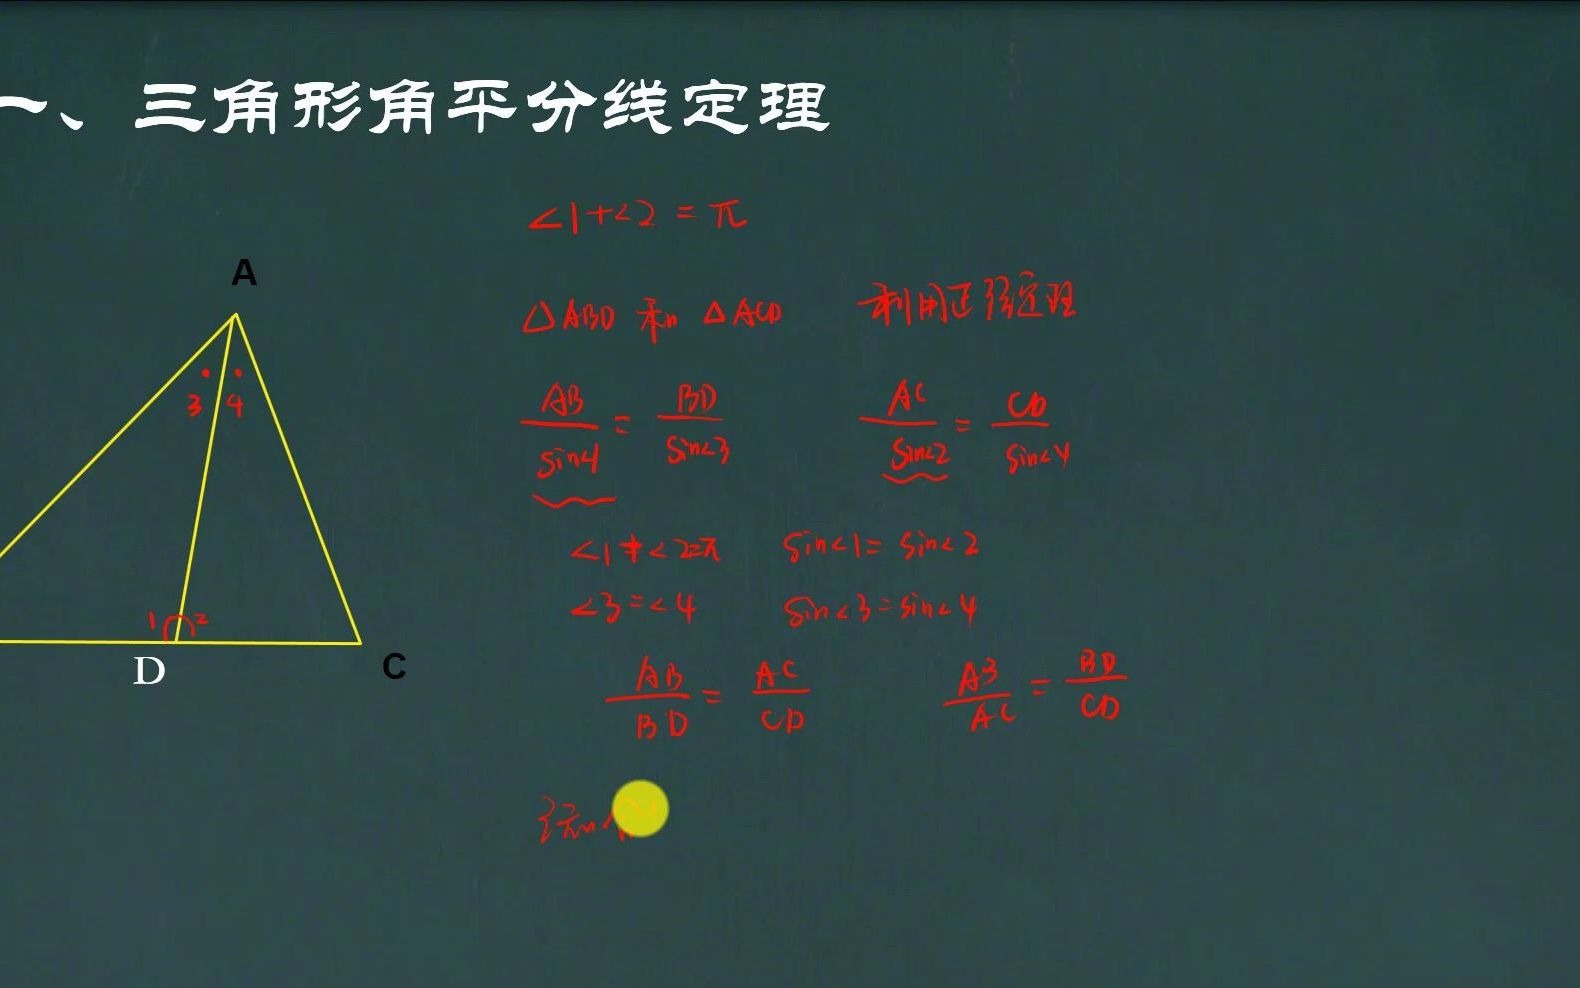 一、三角形角平分线定理
∠1+∠2=π
A
△ABD 和 △ACD 利用正弦定理
3 4
AB/sin∠1 = BD/sin∠3 AC/sin∠2 = CD/sin∠4
∠1+∠2=π sin∠1=sin∠2
∠3=∠4 sin∠3=sin∠4
1 2
D
C
AB/BD = AC/CD AB/AC = BD/CD